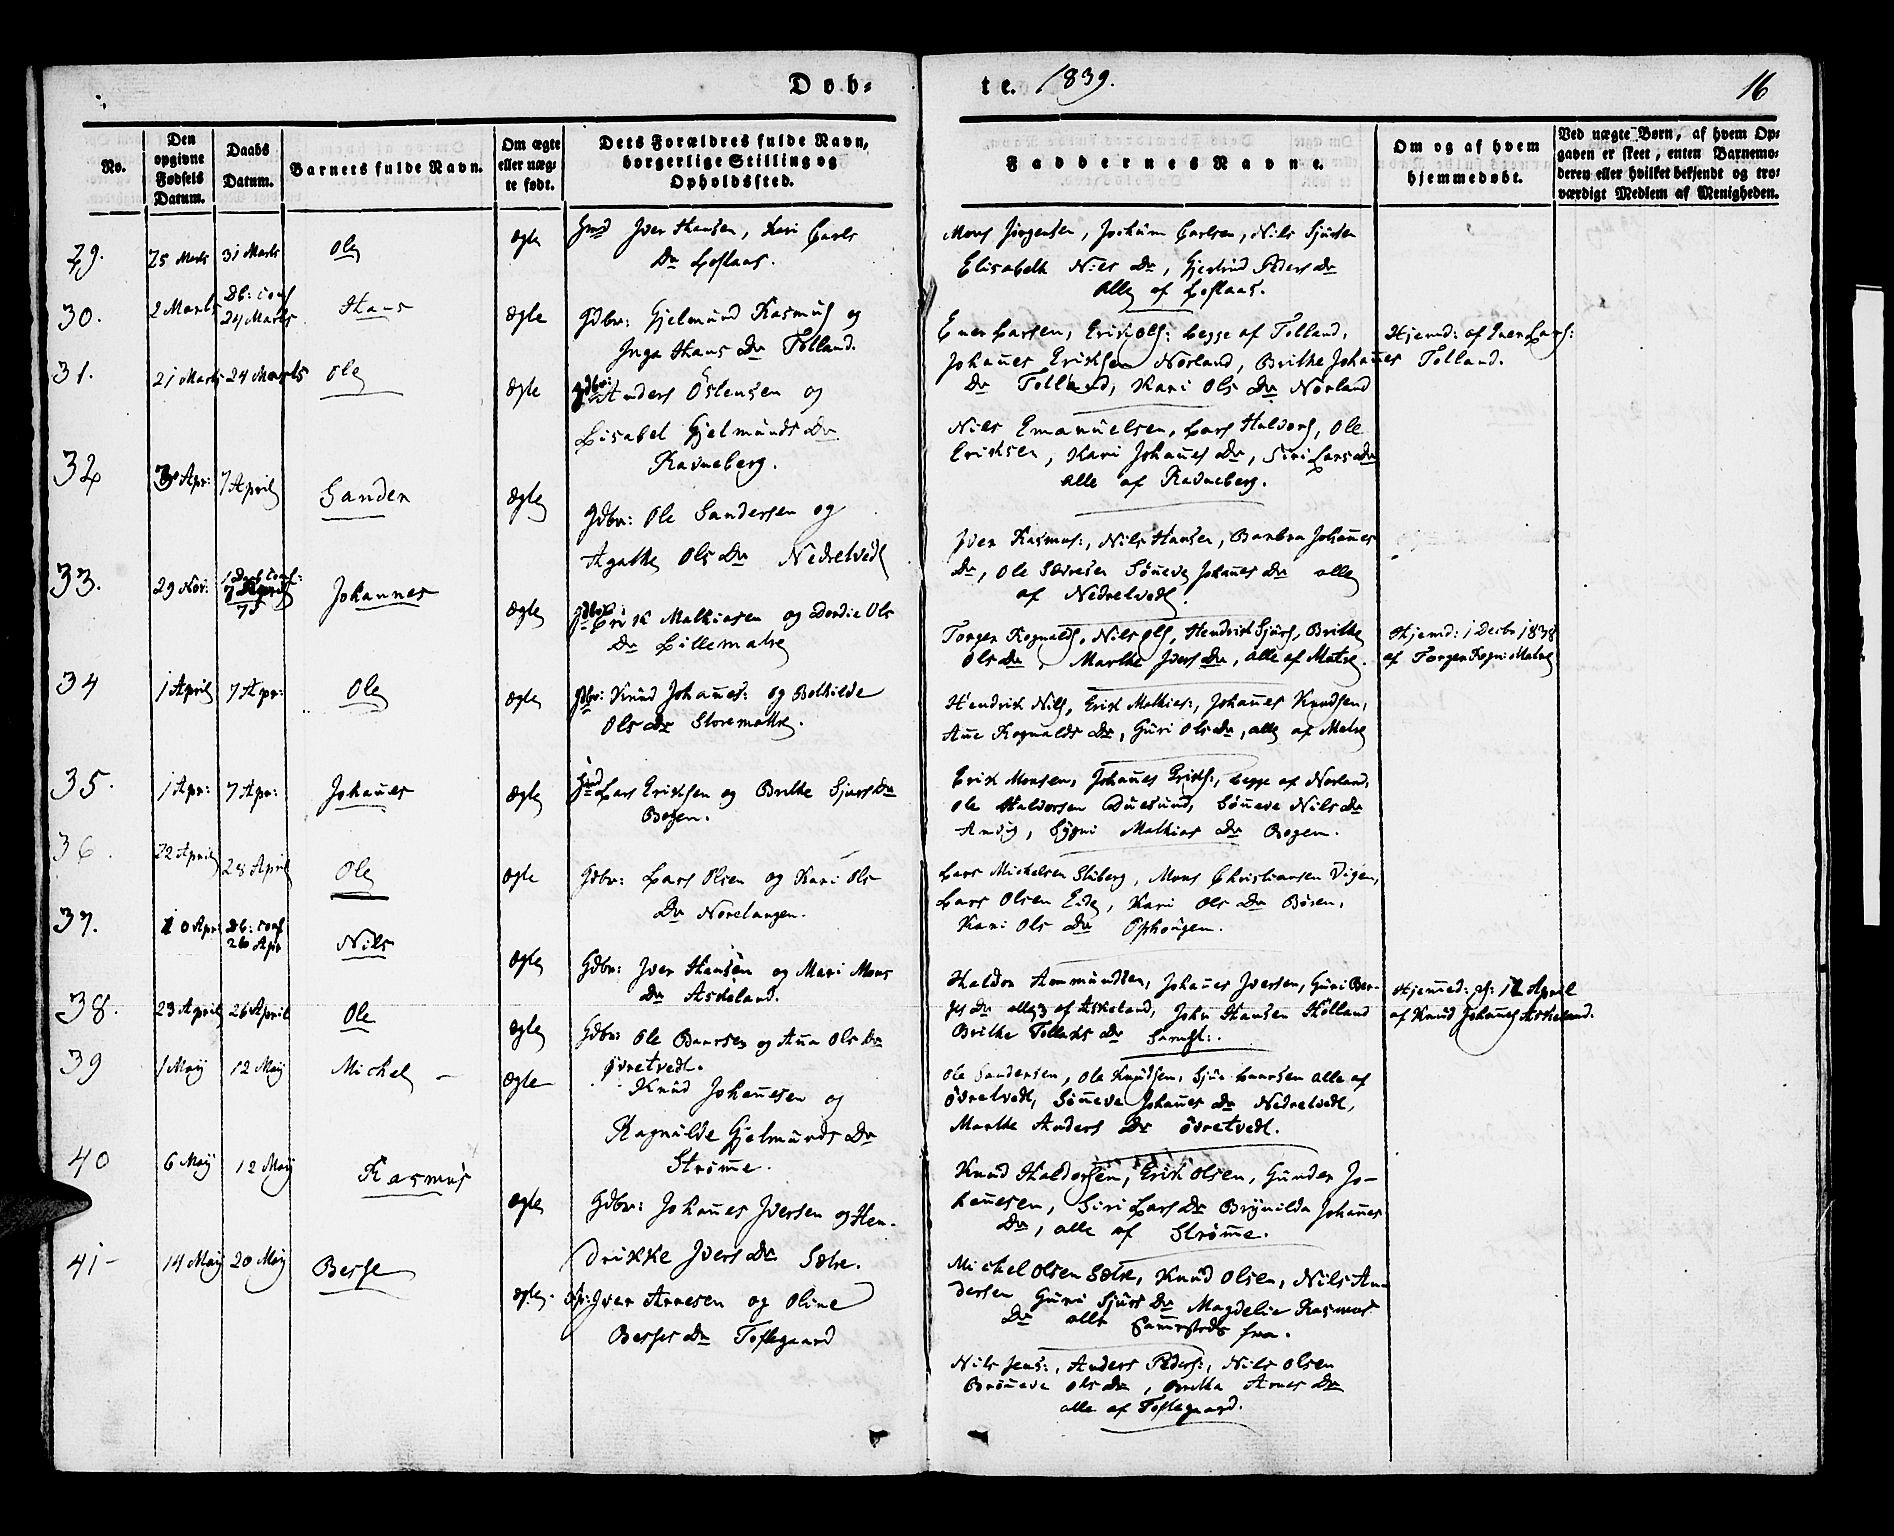 Døb-
te. 1839.
16
No.
Den opgivne Fødsels Datum.
Daabs Datum.
Barnets fulde Navn.
Om ægte eller uægte født.
Dets Forældres fulde Navn, borgerlige Stilling og Opholdssted.
Faddernes Navne.
Om og af hvem hjemmedøbt.
Ved uægte Børn, af hvem Opgaven er skeet, enten Barnemoderen eller hvilket bekjendt og troværdigt Medlem af Menigheden.
29. 25 Marts 31 Marts Ole ægte
Iver Hansen, Kari Carls
Dr
Mons Jörgensen, Jochum Carlsen, Nils Sjursen
Elisabeth Nils Dr, Gjertrud Peders Dr
alle af
30. 2 Marts Db: conf 24 Marts Hans ægte
Gdbr: Gjelmund Rasmus og
Inga Hans Dr Tolland.
Ener Larsen, Erik Ols: begge af Tolland,
Johannes Eriksen Nörland, Brithe Johannes
Dr Tolland, Kari Ols Dr Nörland
Hjemd: af Ener Lars:
Tolland.
31. 21 Marts 24 Marts Ole ægte
gdbr: Anders Östensen og
Lisabet Gjelmunds Dr
Ravneberg.
Nils Emanuelsen, Lars Haldors, Ole
Eriksen, Kari Johannes Dr, Siri Lars Dr
alle af Ravneberg.
32 Apr: 7 April Sander ægte
Gdbr: Ole Sandersen og
Agathe Ols Dr Nedretvedt
Iver Rasmus:, Nils Hansen, Barbra Johannes
Dr, Ole Sæveresen Sönneve Johannes Dr alle
af Nedretvedt.
33. 29 Nov: Johannes ægte
Erik Mathiasen og Dordie Ols
Dr Lillematre
Torger Rognalds, Nils Ols, Hendrik Sjurs, Brithe
Ols Dr, Marthe Ivers Dr, alle af Matre.
Hjemd: 1 Decbr 1838
af Torger Rogn: Matre
34 1 April 7 Apr: Ole ægte
Gdbr: Knud Johannes: og Bothilde
Ols Dr Storematre.
Hendrik Nils, Erik Mathias:, Johannes Knudsen,
Anne Rognalds Dr, Guri Ols Dr, alle af Matre
35. 1 Apr: 7 Apr: Johannes ægte
Lars Eriksen og Brithe Sjurs Dr
Bogen.
Erik Monsen, Johannes Eriks:, begge af Norland,
Ole Haldorsen Duesund, Sönneve Nils Dr
Andvig, Sygni Mathias Dr Bogen.
36. 22 April 28 April Ole ægte
Gdbr: Lars Olsen og Kari Ols
Dr Norelangen.
Lars Michelsen Skiberg, Mons Christiansen Vigen,
Lars Olsen Eide, Kari Ols Dr Böen,
Kari Ols Dr Ophougen.
37. 10 Apr: Db: conf 26 Apr Nils ægte
Gdbr: Iver Hansen og Mari Mons
Dr Askeland.
Haldor Aamundsen, Johannes Iversen, Guri Bør-
ges Dr alle 3 af Askeland, John Hansen Holland
Brithe Tollaks Dr
Hjemmed: 12 April
af Knud Johannes Askeland.
38. 23 April 26 April Ole ægte
Gdbr: Ole Baarsen og Anna Ols Dr
Övretvedt.
Ole Sandersen, Ole Knudsen, Sjur Baarsen alle af
Övretvedt, Sönneve Johannes Dr Nedretvedt,
Marthe Anders Dr Övretvedt.
39 1 May 12 May Michel ægte
Knud Johannesen og
Ragnilde Gjelmunds Dr
Strömme.
Knud Haldorsen, Erik Olsen, Gunder Jo-
hannesen, Siri Lars Dr Brynilda Johannes
Dr, alle af Strömme.
40 6 May 12 May Rasmus ægte
Gdbr: Johannes Iversen og Hen-
drikke Ivers Dr Sætre.
Michel Olsen Sætre, Knud Olsen, Nils An-
dersen Guri Sjurs Dr Magdelie Rasmus
Dr alle Sammesteds fra.
41 14 May 20 May Besse ægte
Iver Arnesen og Oline
Besses Dr Toftegaard
Nils Jens:, Anders Peders:, Nils Olsen
Brönneve Ols Dr, Britha Arnes Dr
alle af Toftegaard.